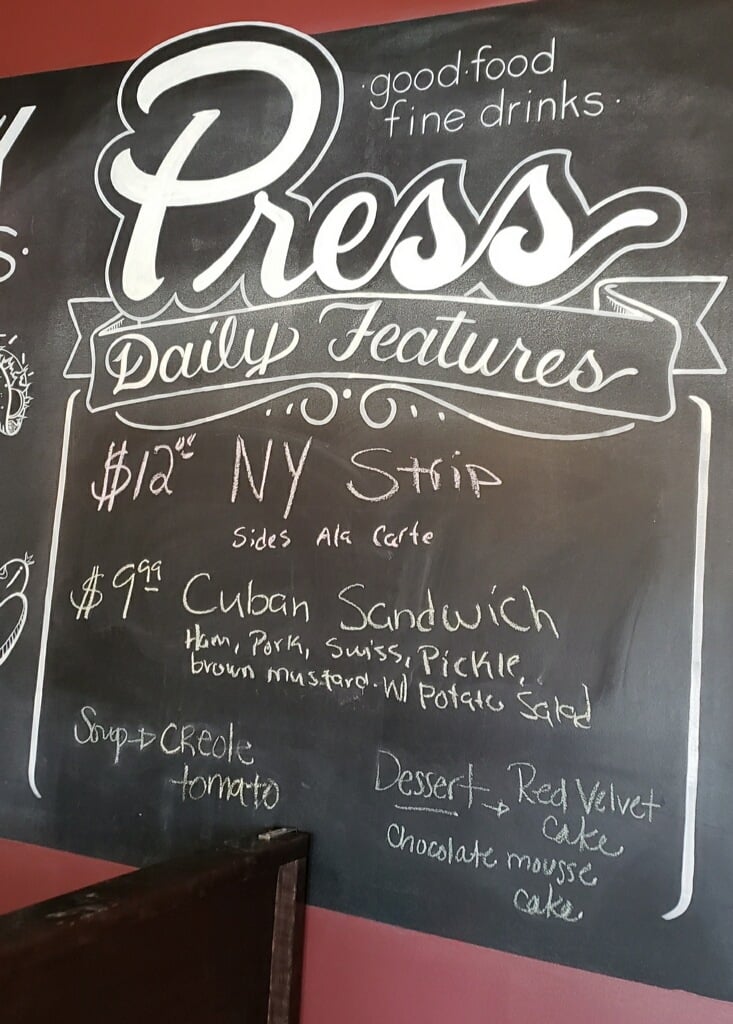 ·good·food
fine drinks·
Press
Daily Features
$12.00 NY Strip
Sides Ala Carte
$9.99 Cuban Sandwich
Ham, Pork, Swiss, Pickle,
brown mustard. W/ Potato Salad
Soup → Creole
tomato
Dessert → Red Velvet
cake
Chocolate mousse
cake